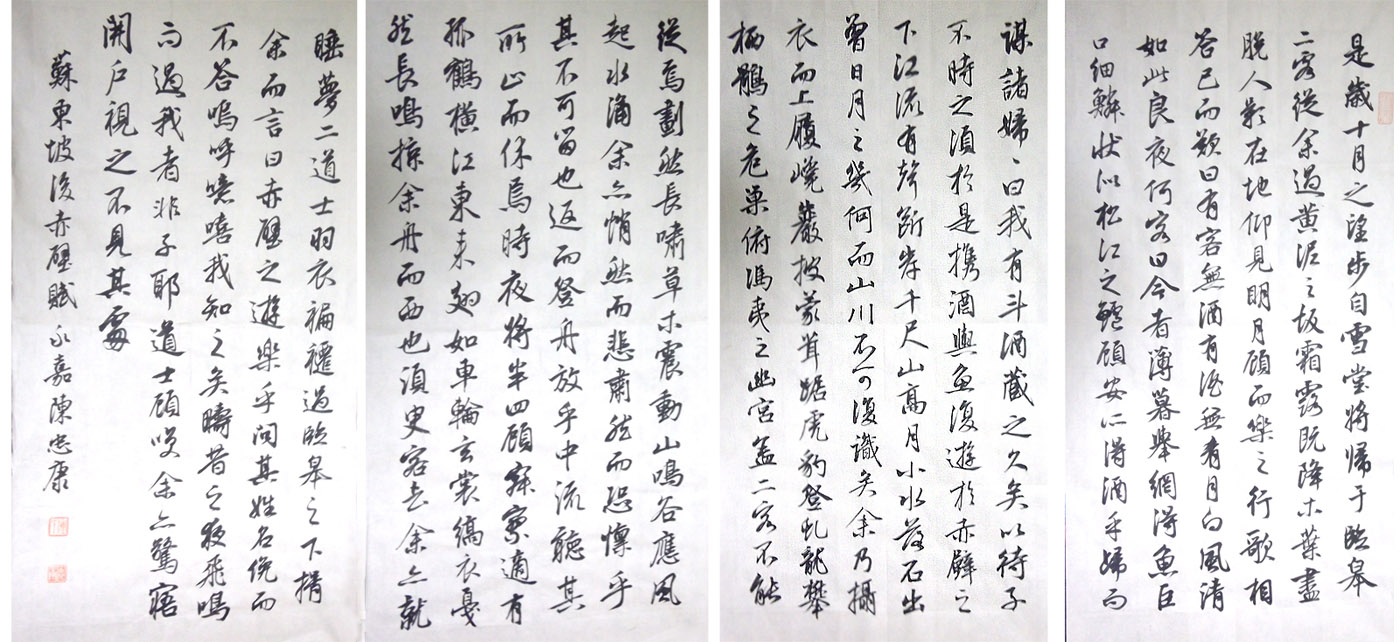 是歲十月之望步自雪堂將歸于臨皋
二客從余過黃泥之坂霜露既降木葉盡
脫人影在地仰見明月顧而樂之行歌相
答已而歎曰有客無酒有酒無肴月白風清
如此良夜何客曰今者薄暮舉網得魚巨
口細鱗狀似松江之鱸顧安所得酒乎歸而
謀諸婦、曰我有斗酒藏之久矣以待子
不時之須於是攜酒與魚復遊於赤壁之
下江流有聲斷岸千尺山高月小水落石出
曾日月之幾何而山川不可復識矣余乃攝
衣而上履巉巖披蒙茸踞虎豹登虬龍攀
栖鶻之危巢俯馮夷之幽宮盖二客不能
從焉劃然長嘯草木震動山鳴谷應風
起水涌余亦悄然而悲肅然而恐凜乎
其不可留也返而登舟放乎中流聽其
所止而休焉時夜將半四顧寂寥適有
孤鶴橫江東来翅如車輪玄裳縞衣戛
然長鳴掠余舟而西也須臾客去余亦就
睡夢二道士羽衣褊褼過臨皋之下揖
余而言曰赤壁之遊樂乎問其姓名俛而
不答嗚呼噫嘻我知之矣疇昔之夜飛鳴
而過我者非子耶道士顧笑余亦驚寤
開戶視之不見其處
蘇東坡後赤壁賦永嘉陳忠康